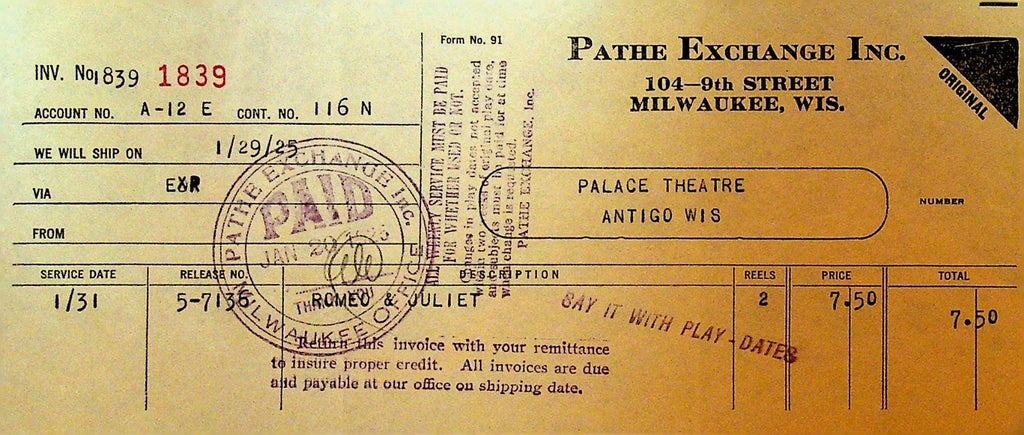 Form No. 91
PATHE EXCHANGE INC.
104—9th STREET
MILWAUKEE, WIS.
ORIGINAL
INV. No. 1839 1839
ACCOUNT NO. A-12 E CONT. NO. 116 N
WE WILL SHIP ON 1/29/25
VIA EXR
FROM
ALL WEEKLY SERVICE MUST BE PAID
FOR WHETHER USED OR NOT.
Changes in play dates not accepted
within two weeks of original play date,
and subjects must be paid for at time
which change is requested.
PATHE EXCHANGE, Inc.
PALACE THEATRE
ANTIGO WIS
NUMBER
PATHE EXCHANGE Inc.
PAID
JAN 29 1925
THANK YOU
MILWAUKEE OFFICE
SERVICE DATE RELEASE NO. DESCRIPTION REELS PRICE TOTAL
1/31 5-7136 ROMEO & JULIET 2 7.50 7.50
SAY IT WITH PLAY-DATES
Return this invoice with your remittance
to insure proper credit. All invoices are due
and payable at our office on shipping date.